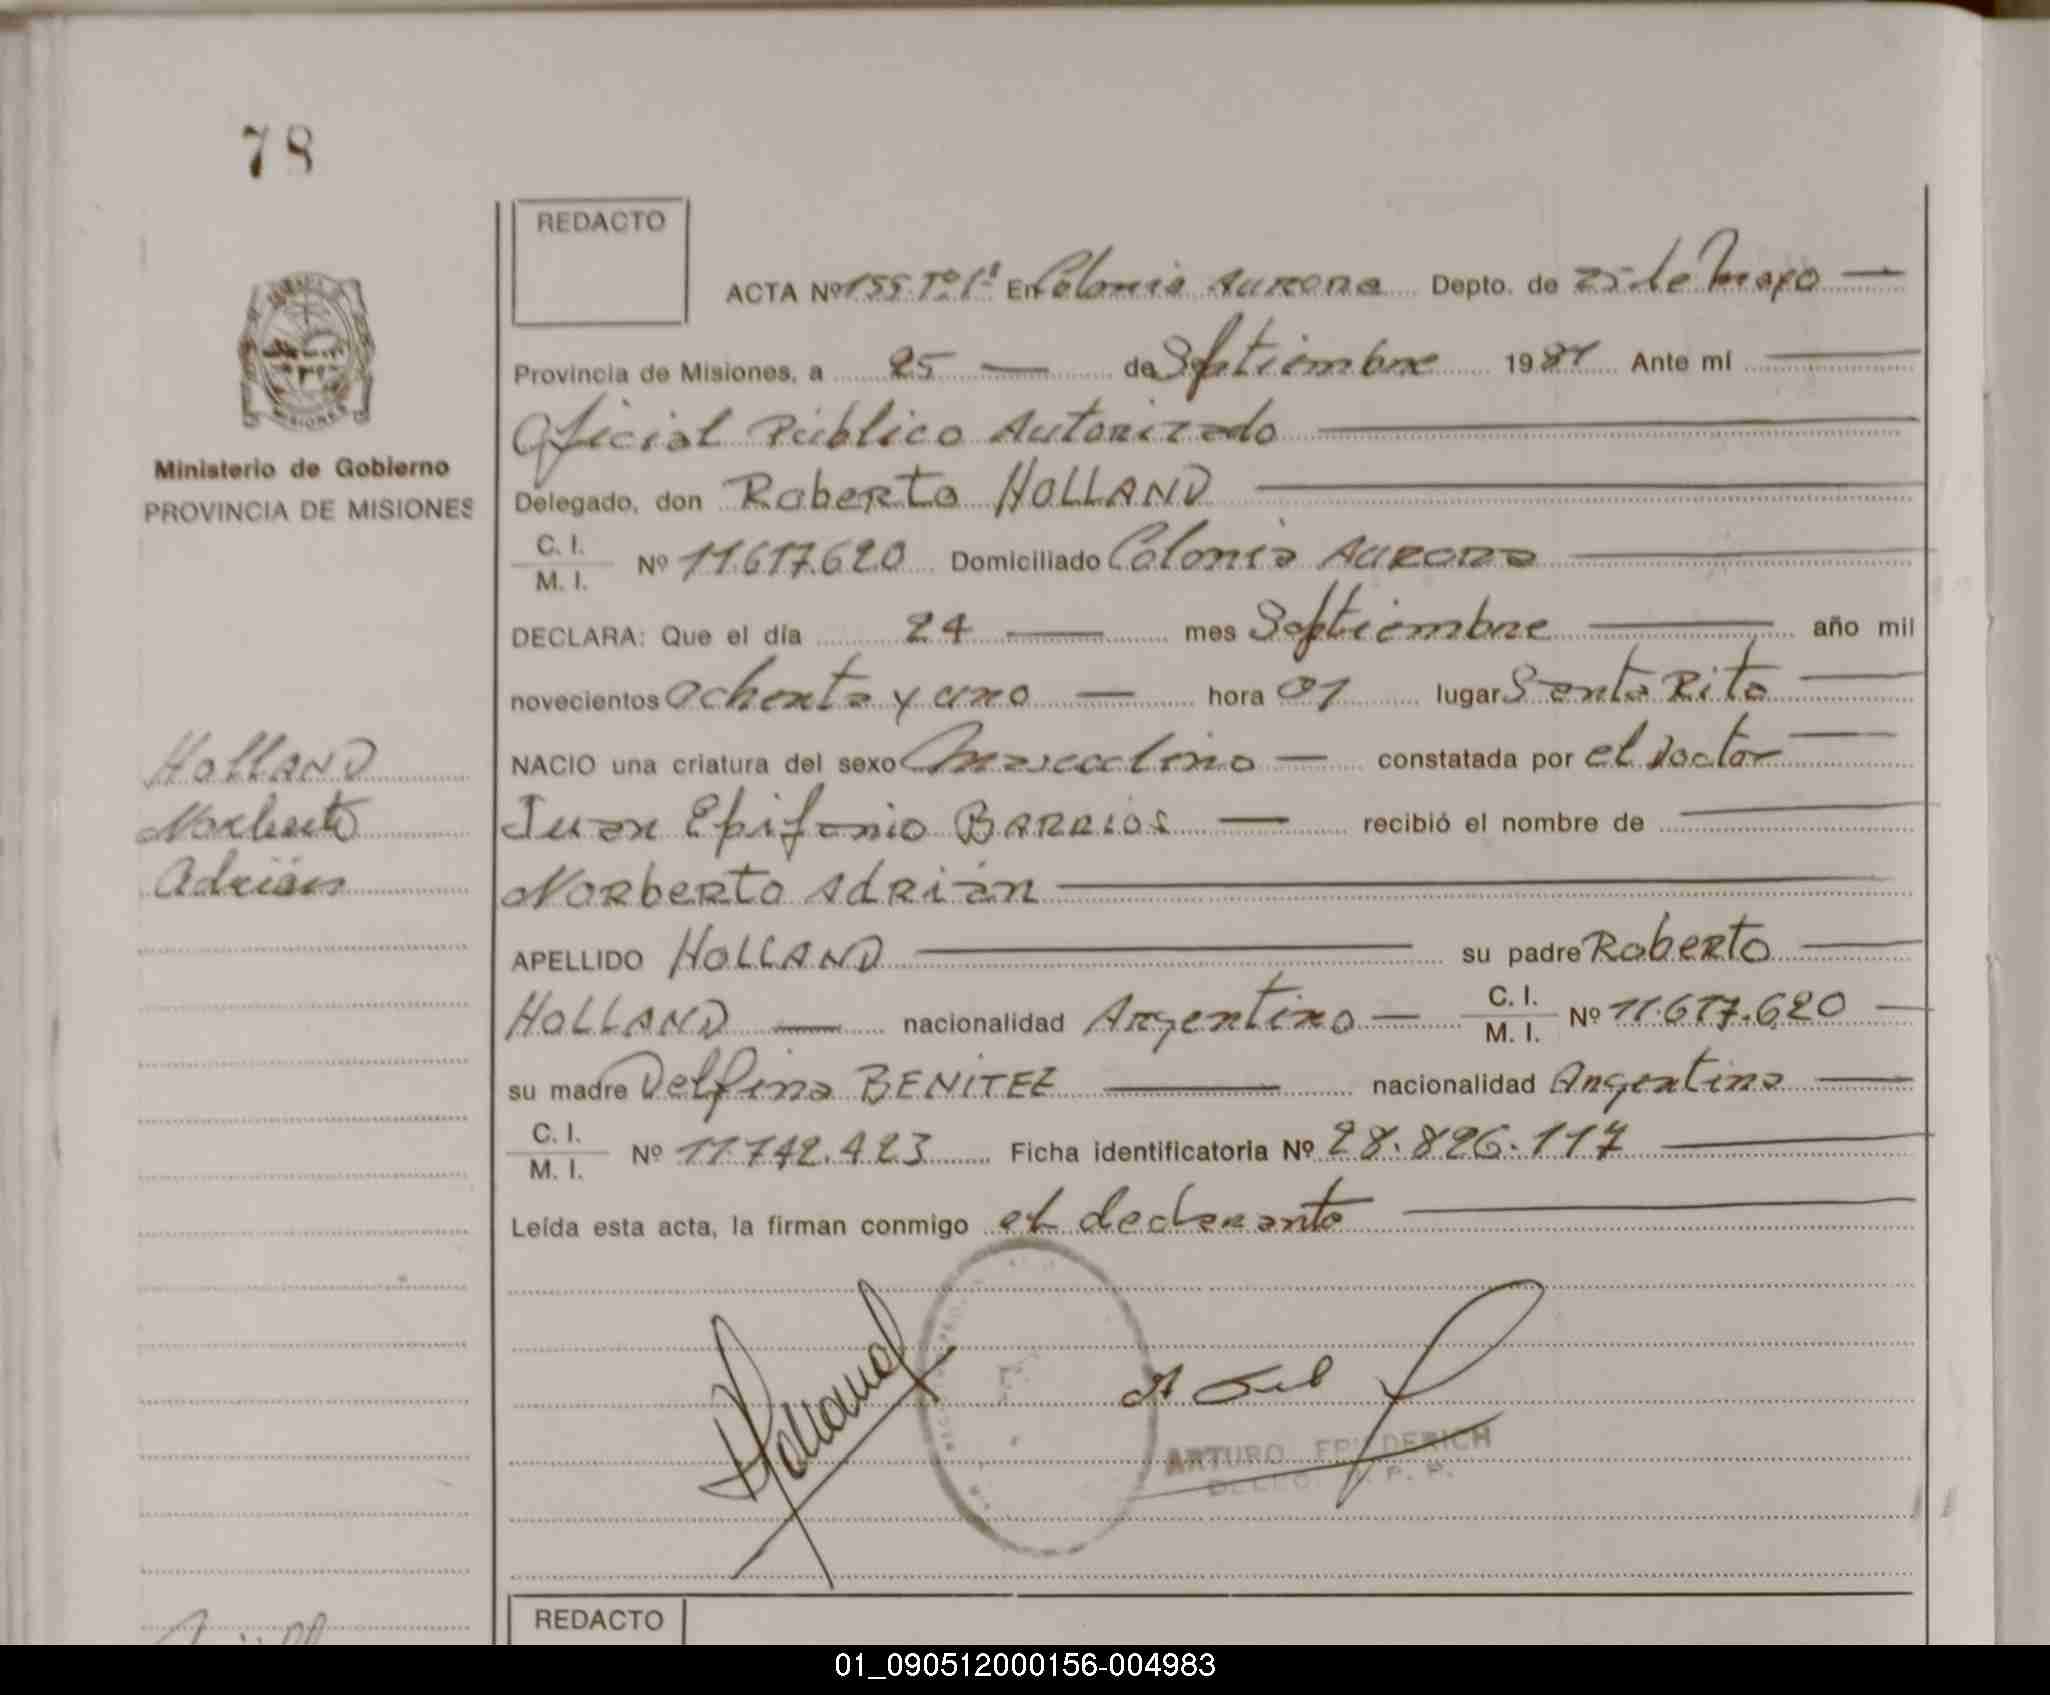 78
REDACTO
ACTA Nº 155 Tº 1º En Colonia Aurora Depto. de 25 de Mayo
Provincia de Misiones, a 25 de Septiembre 1981 Ante mí
Oficial Público Autorizado
Ministerio de Gobierno
PROVINCIA DE MISIONES
Delegado, don Roberto HOLLAND
C. I.
M. I. Nº 11.617.620 Domiciliado Colonia Aurora
DECLARA: Que el día 24 mes Septiembre año mil
novecientos ochenta y uno hora 01 lugar Santa Rita
HOLLAND
Norberto
Adrián
NACIO una criatura del sexo Masculino constatada por el Doctor
Juan Epifanio BARRIOS recibió el nombre de
Norberto Adrián
APELLIDO HOLLAND su padre Roberto
HOLLAND nacionalidad Argentino C. I.
M. I. Nº 11.617.620
su madre Delfina BENITEZ nacionalidad Argentina
C. I.
M. I. Nº 11.742.423 Ficha identificatoria Nº 28.826.117
Leída esta acta, la firman conmigo el declarante
ARTURO FRIEDERICH
REDACTO
01_090512000156-004983